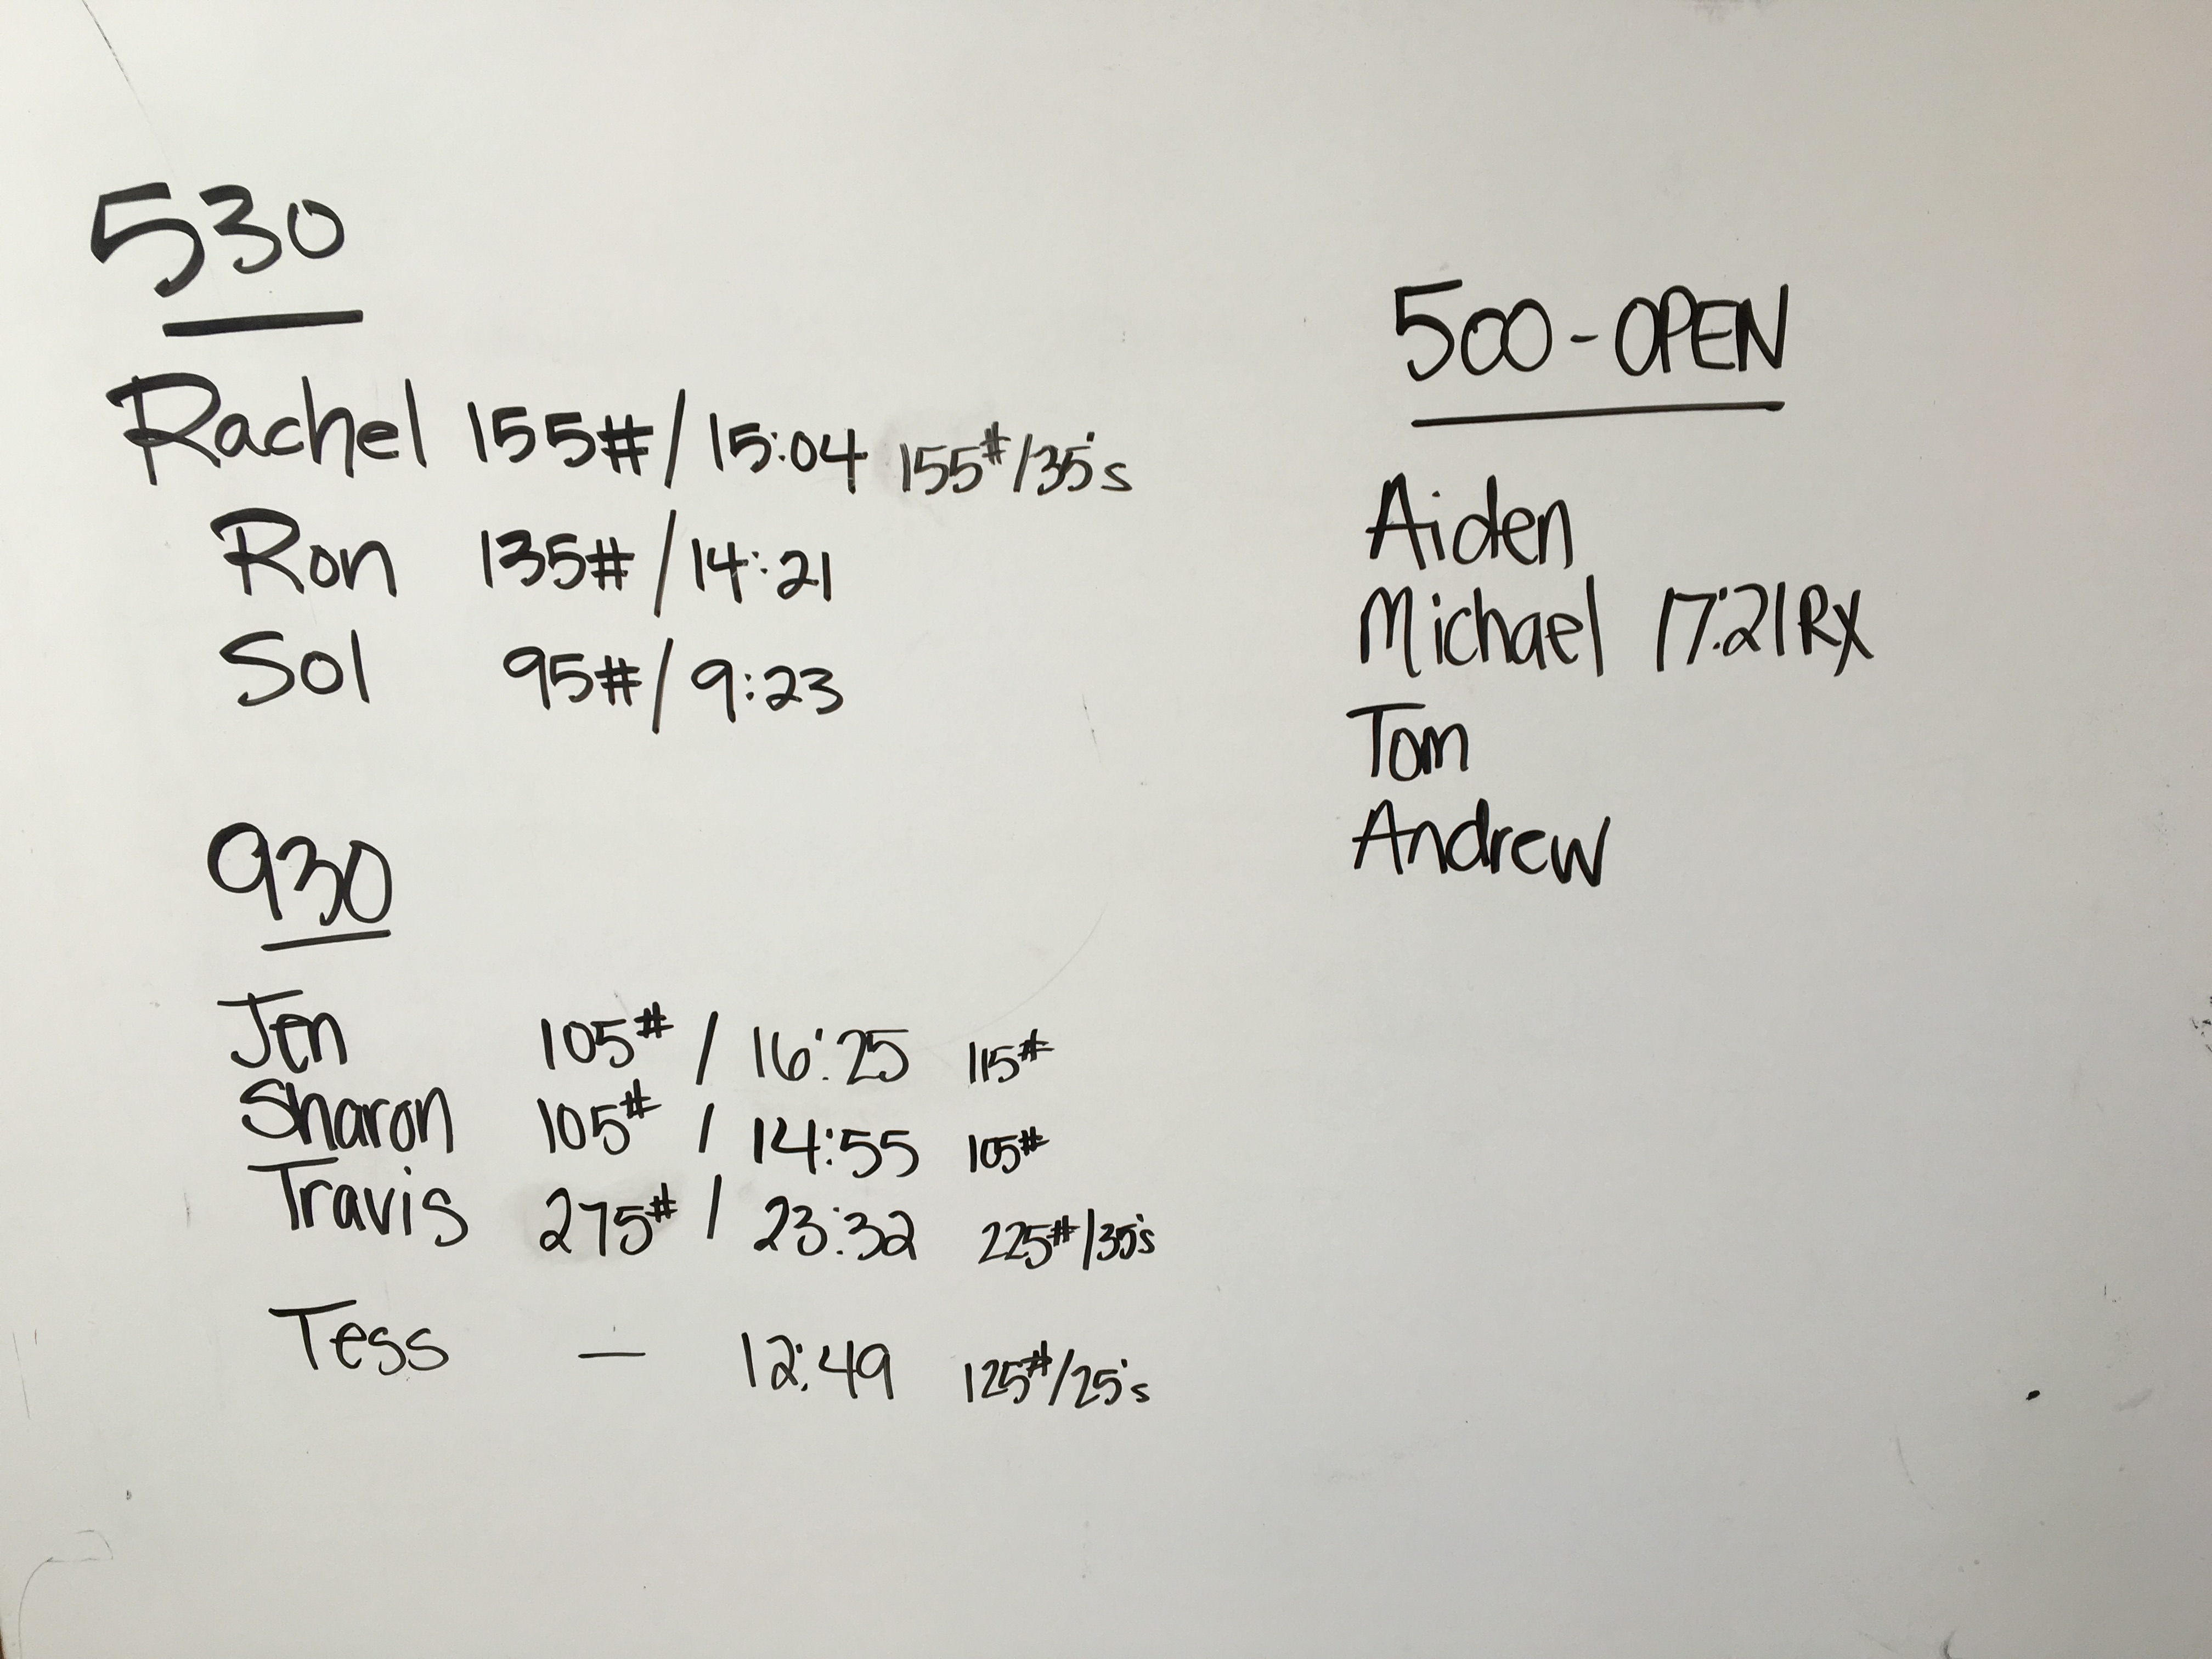 530
Rachel 155#/15:04 155#/35's
Ron 135#/14:21
Sol 95#/9:23
930
Jen 105#/16:25 115#
Sharon 105#/14:55 105#
Travis 275#/23:32 225#/35's
Tess — 12:49 125#/25's
500-OPEN
Aiden
Michael 17:21 RX
Tom
Andrew